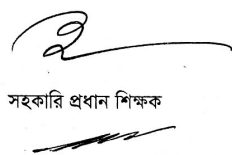 সহকারি প্রধান শিক্ষক